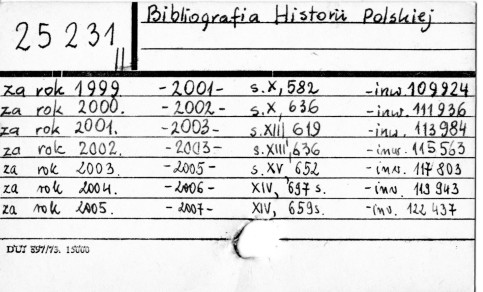 25 231 II
Bibliografia Historii Polskiej
za rok 1999. -2001- s.X, 582 -inw. 109924
za rok 2000. -2002- s.X, 636 -inw. 111936
za rok 2001. -2003- s.XIII, 619 -inw. 113984
za rok 2002. -2003- s.XIII, 636 -inw. 115563
za rok 2003. -2005- s.XV, 652 -inw. 117803
za rok 2004. -2006- XIV, 697 s. -inw. 119943
za rok 2005. -2007- XIV, 659 s. -inw. 122437
DUJ 897/73. 15000